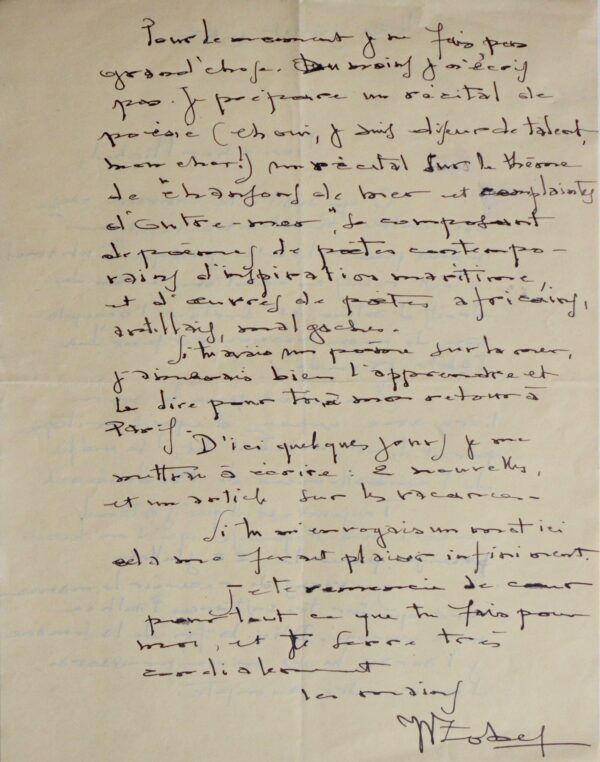 Pour le moment je ne fais pas
grand'chose. Du moins je n'écris
pas. Je prépare un récital de
poésie (eh oui, je suis diseur de talent,
mon cher!) un récital sur le thème
de "chansons de mer et complaintes
d'Outre-mer", se composant
de poèmes de poètes contempo-
rains d'inspiration maritime,
et d'œuvres de poètes africains,
antillais, malgaches.
Si tu avais un poème sur la mer,
j'aimerais bien l'apprendre et
le dire pour toi à mon retour à
Paris.
D'ici quelques jours je me
mettrai à écrire : 2 nouvelles,
et un article sur les vacances.
Si tu m'envoyais un mot ici
cela me ferait plaisir infiniment.
Je te remercie de cœur
pour tout ce que tu fais pour
moi, et te serre très
cordialement
les mains
Zobel